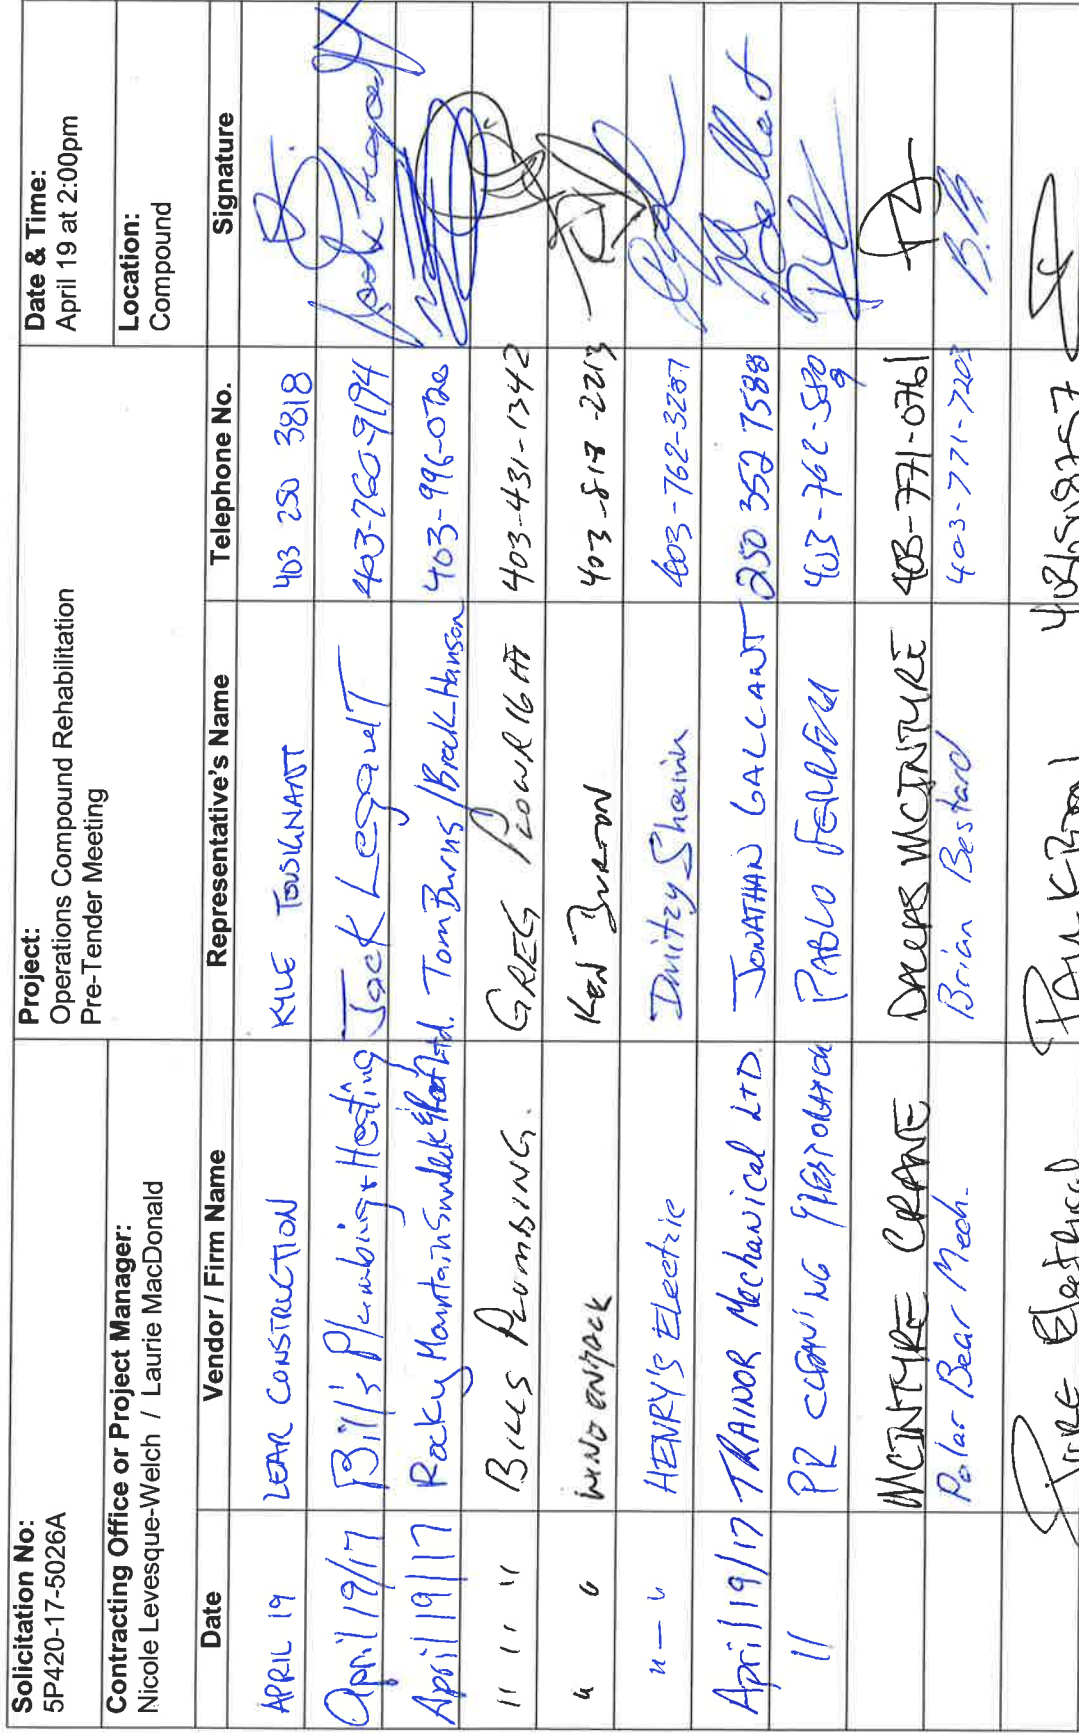 Solicitation No:
5P420-17-5026A
Project:
Operations Compound Rehabilitation
Pre-Tender Meeting
Date & Time:
April 19 at 2:00pm
Contracting Office or Project Manager:
Nicole Levesque-Welch / Laurie MacDonald
Location:
Compound
Date Vendor / Firm Name Representative's Name Telephone No. Signature
APRIL 19 LEAR CONSTRUCTION KYLE TOUSIGNANT 403 250 3818
April 19/17 Bill's Plumbing + Heating Jack Legault 403-760-9194
April 19/17 Rocky Mountain Sundeck & Roof Ltd. Tom Burns / Brock Hanson 403-996-0726
11 11 11 BILLS PLUMBING. GREG PLOWRIGHT 403-431-1342
" " KEN BURTON 403-813-2213
" — " HENRY'S Electric Dmitzy 403-762-3287
April 19/17 TRAINOR Mechanical LTD. JONATHAN GALLANT 250 352 7588
11 PR CLEANING & RESTORATION PABLO 403-762-5809
MCINTYRE CRANE DALLAS MCINTYRE 403-771-0761
Polar Bear Mech. Brian Bestard 403-771-7203 B.B
PURE Electrical Paul